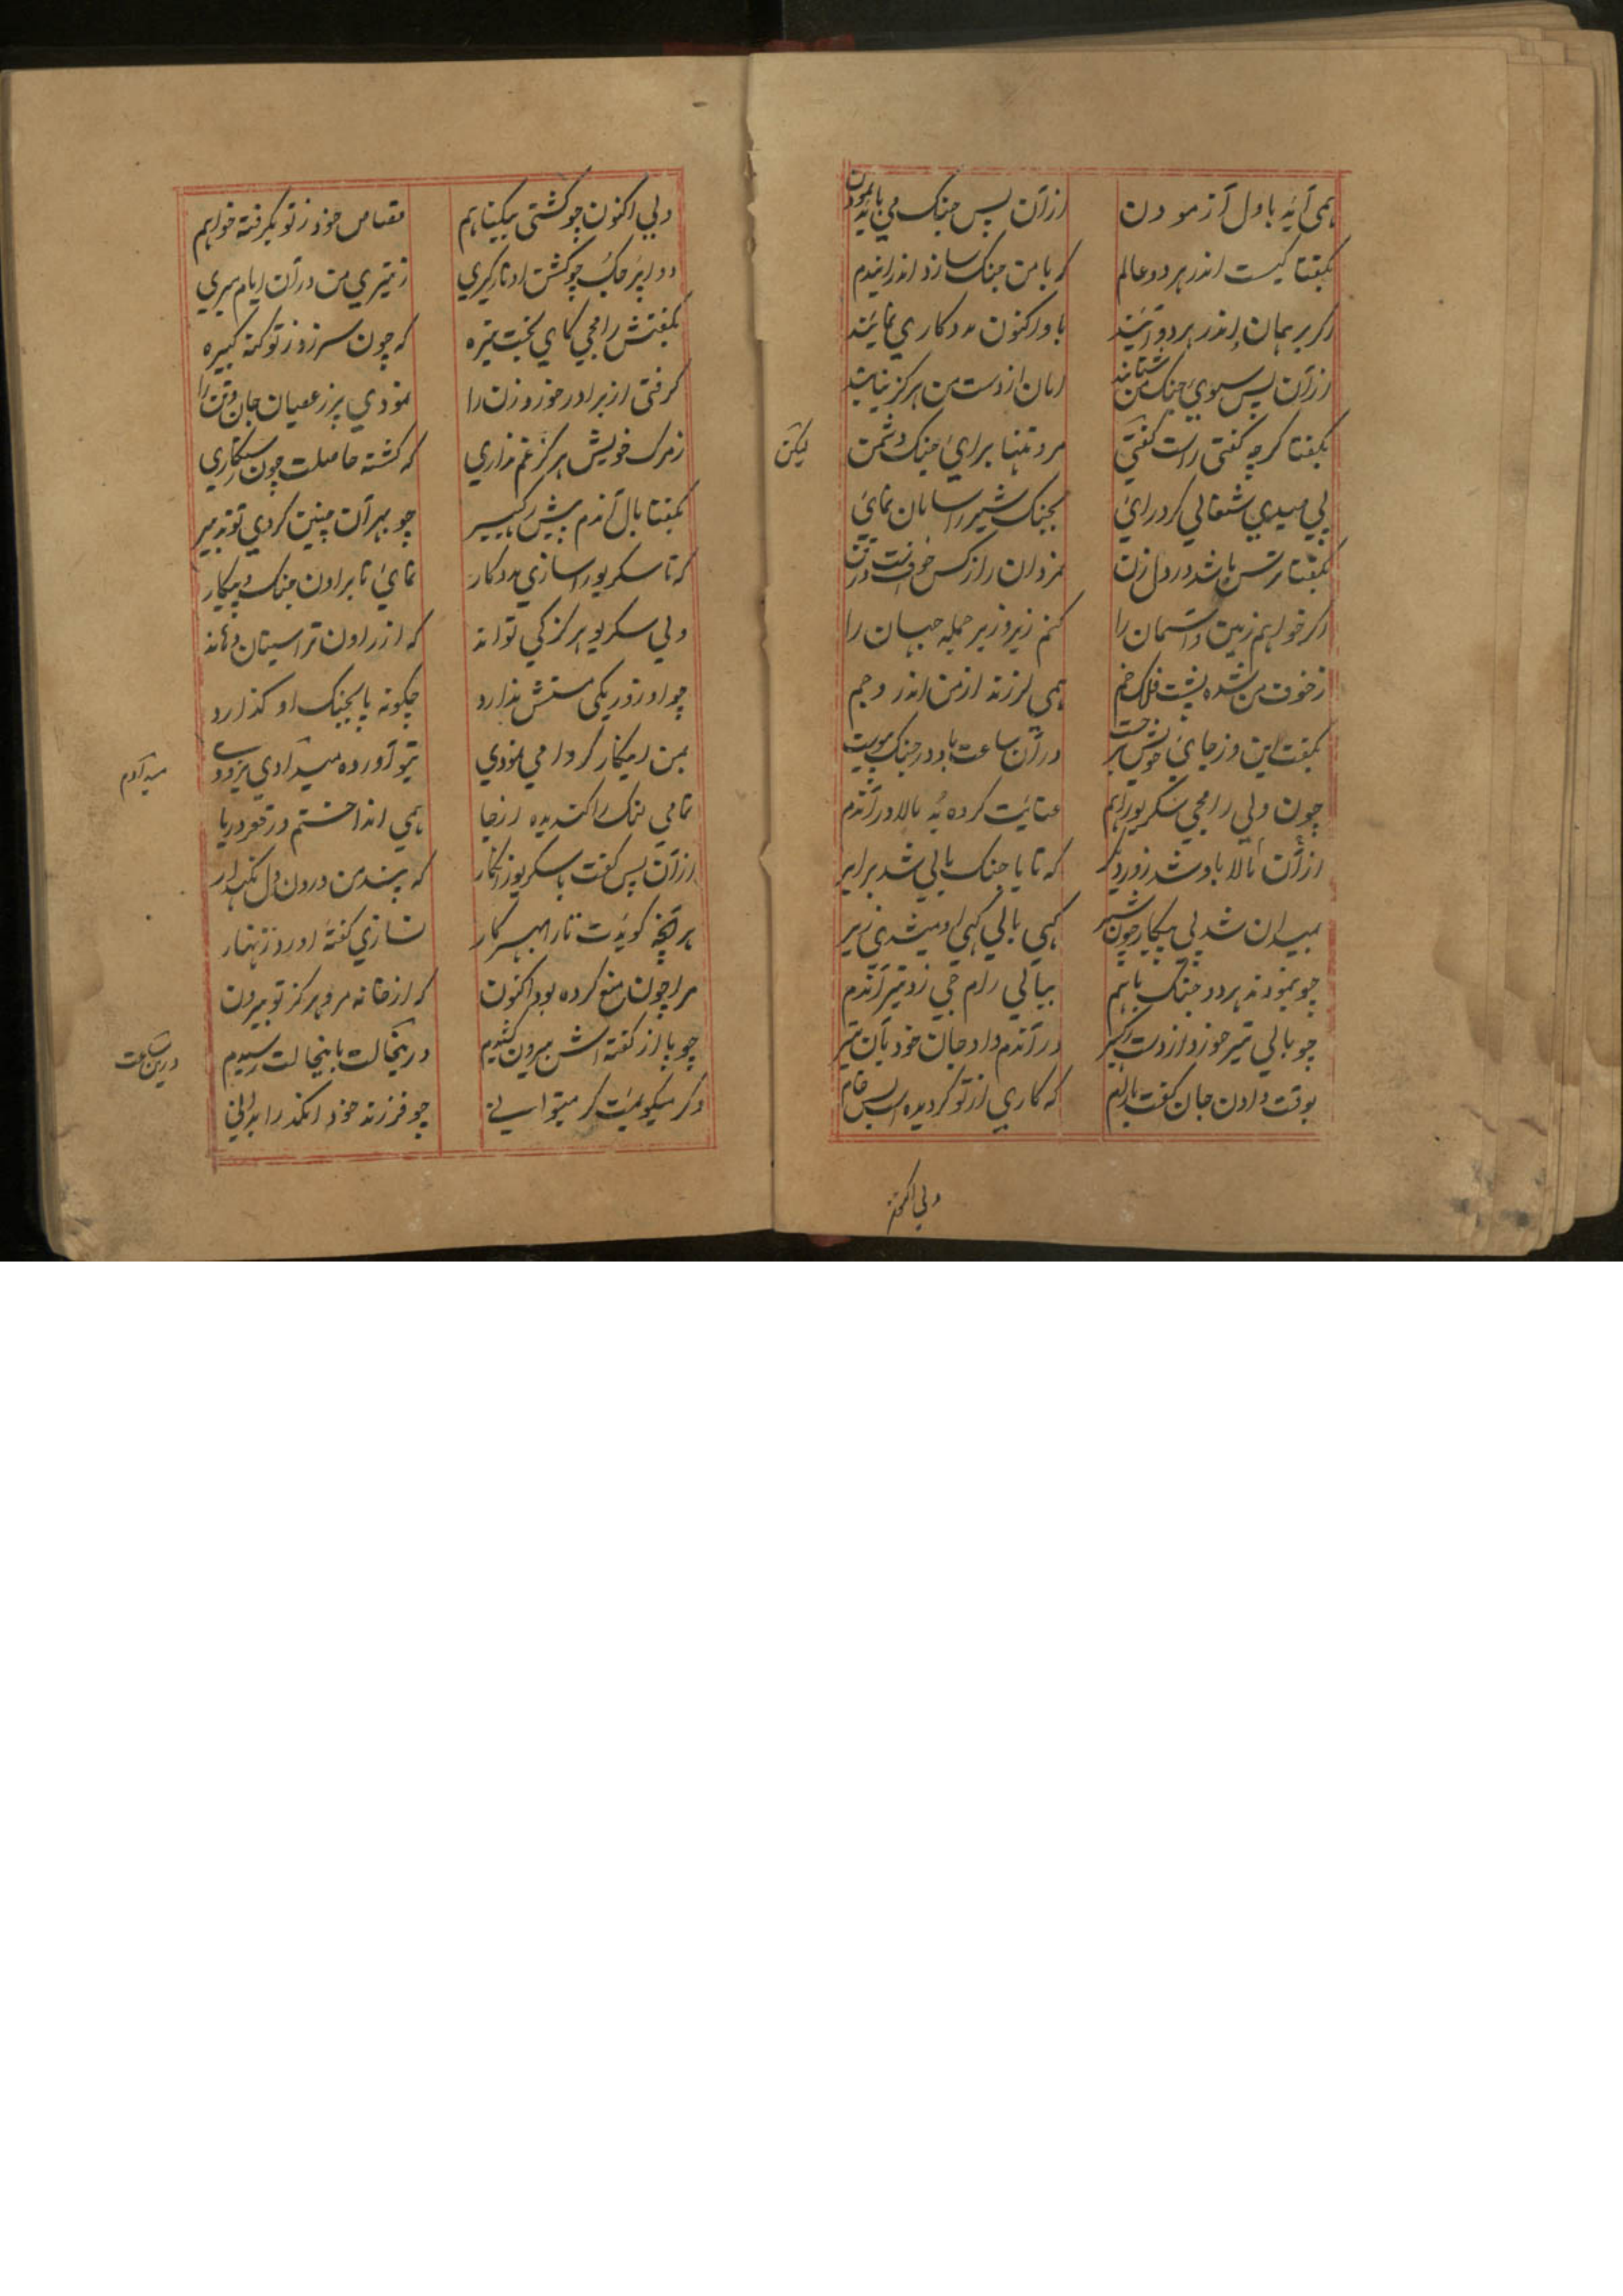 همی آید باول آزمودن ازآن پس جنک می باید نمودن
بکفتا کیست اندر هر دو عالم که با من جنک سازد اندراندم
اکر برهمان اندر هردو آیند باو اکنون مددکاری نمایند
ازآن پس سوی جنک من شتابند امان از دست من هرکز نیابند
بکفتا کرچه کفتی راست کفتی مرو تنها برای جنک دشمن
لیکن
پی صیدی شغالی کر درای بجنک شیر را سامان نمای
بکفتا ترس باشد در دل زن مردان را از کس خوف
اکر خواهم زمین و آسمان را کنم زیر و زبر جمله جهان را
زخوف من شده پشت فلک خم همی لرزند از من اندر و جم
بکفت این وز جای خویش برجست درآن ساعت باو در جنک پیوست
چون ولی رامجی سکریو راهم عنایت کرده بد بالا درآندم
ازآن بالا باو شد زور دیکر که تا با جنک بالی شد برابر
بمیدان شد پی پیکار چون شیر کهی بالی کهی او میشدی زیر
چو نمودند هردو جنک باهم ببالی رام جی زد تیر آندم
چو بالی تیر خورد از دست درآندم داد جان خود بآن تیر
بوقت دادن جان کفت با رام که کاری از تو کردیده است بس خام
ولی اکنون
ولی اکنون چو کشتی بیکناهم قصاص خود ز تو بکرفته خواهم
دواپر جک چو کشت اوتار کیری ز تیری من درآن ایام میری
بکفتش رامجی کای بخت تیره که چون سرزد ز تو کنه کبیره
کرفتی از برادر خورد زن را نمودی پر ز عصیان جان و تن را
ز مرک خویش هرکز غم نداری که کشته حاصلت چون رستکاری
بکفتا بال آندم پیش رکبیر چو بهر آن چنین کردی تو تدبیر
که تا سکریو را سازی مددکار نمای تا براون جنک و پیکار
ولی سکریو هرکز کی تواند که از راون ترا سیتان دهاند
چو او زور یکی مشتش ندارد چکونه پا بجنک او کذارد
بمن این کار کر وا می نمودی بتو آورده میدادی بزودی
میدآدم
تمامی لنک را کندیده ازجا همی انداختم در قعر دریا
ازآن پس کفت با سکریو زانکار که پند من درون دل نکهدار
هر آنچه کویدت تارا بهر کار نسازی کفته او رد زنهار
مرا چون منع کرده بود اکنون که از خانه مرو هرکز تو بیرون
چو پا از کفته اش بیرون کشیدم درینحالت باینحالت رسیدم
درین ساعت
دکر میکویمت کر میتوانی چو فرزند خود انکد را بدانی